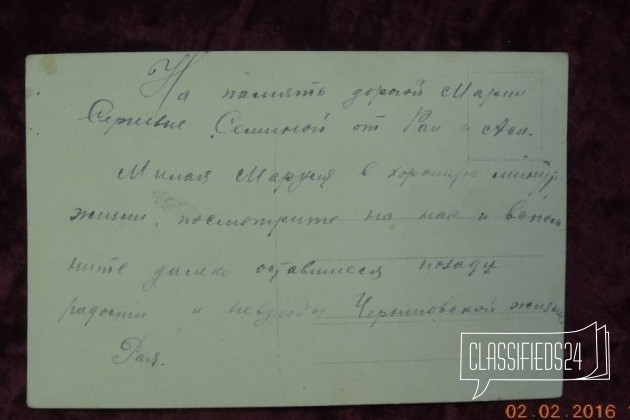 На память дорогой Марии
Сергевне Семиной от Раи и Ася.
Милая Маруся в хорошую минуту
жизни, посмотрите на нас и вспом
ните далеко оставшиеся позади
радости и невзгоды Чернышовской жизни
Рая.
CLASSIFIEDS24
02.02.2016